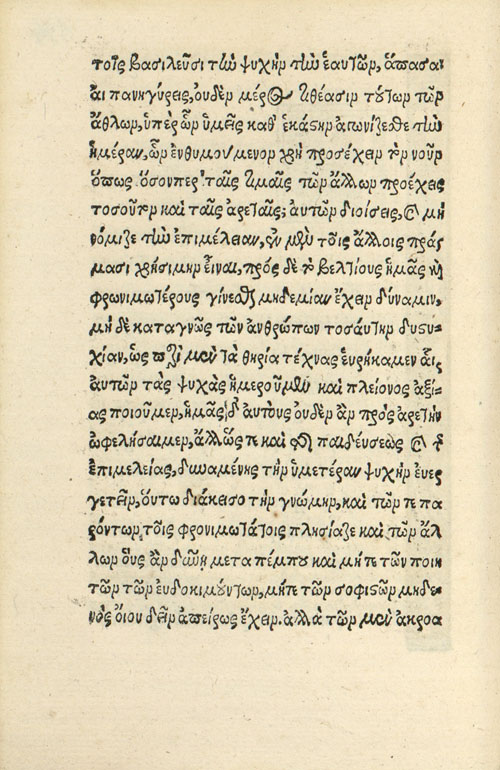 τοῖς βασιλεῦσι τὴν ψυχὴν τὴν ἑαυτῶν, ἅπασαι
αἱ πανηγύρεις, ουδὲν μέρος τιθέασιν τούτων τῶν
ἄθλων, ὑπὲρ ὧν ὑμεῖς καθ' ἑκάστην αγωνίζεσθε τὴν
ἡμέραν, ὧν ἐνθυμούμενον χρὴ προσέχειν τὸν νοῦν
ὅπως ὅσονπερ ταῖς τιμαῖς τῶν ἄλλων προέχεις
τοσοῦτον καὶ ταῖς ἀρεταῖς; αυτῶν διοίσεις, καὶ μὴ
νόμιζε τὴν ἐπιμέλειαν, ἐν μὲν τοῖς ἄλλοις πράγ
μασι χρήσιμην εἶναι, πρός δὲ τὸ βελτίους ἡμᾶς καὶ
φρονιμωτέρους γίνεσθαι μηδεμίαν ἔχειν δύναμιν,
μὴ δὲ καταγνῶς τῶν ἀνθρώπων τοσάυτην δυστυ-
χίαν, ὡς περὶ μὲν τὰ θηρία τέχνας ἑυρήκαμεν αἷς
ἀυτῶν τὰς ψυχὰς ἡμεροῦμεν καὶ πλείονος ἀξί-
ας ποιοῦμεν, ἡμᾶς δ' ἀυτοὺς ουδὲν ἂν πρὸς ἀρετὴν
ὠφελήσαιμεν, ἀλλ' ὥς τε καὶ τῆς παιδέυσεως καὶ τῆς
ἐπιμελείας, δυναμένης τὴν ὑμετέραν ψυχὴν ἐυερ
γετεῖν, ὅυτω διάκεισο τὴν γνώμην, καὶ τῶν τε πα
ρόντων, τοῖς φρονιμωτάτοις πλησίαζε καὶ τῶν ἄλ
λων ὅυς ἂν δύνῃ μετα πέμπου καὶ μήτε τῶν ποιη
τῶν τῶν ἐυδοκιμούντων, μήτε τῶν σοφιστῶν μηδε-
νὸς ὄιου δεῖν ἀπείρως ἔχειν. ἀλλὰ τῶν μὲν ἀκροα